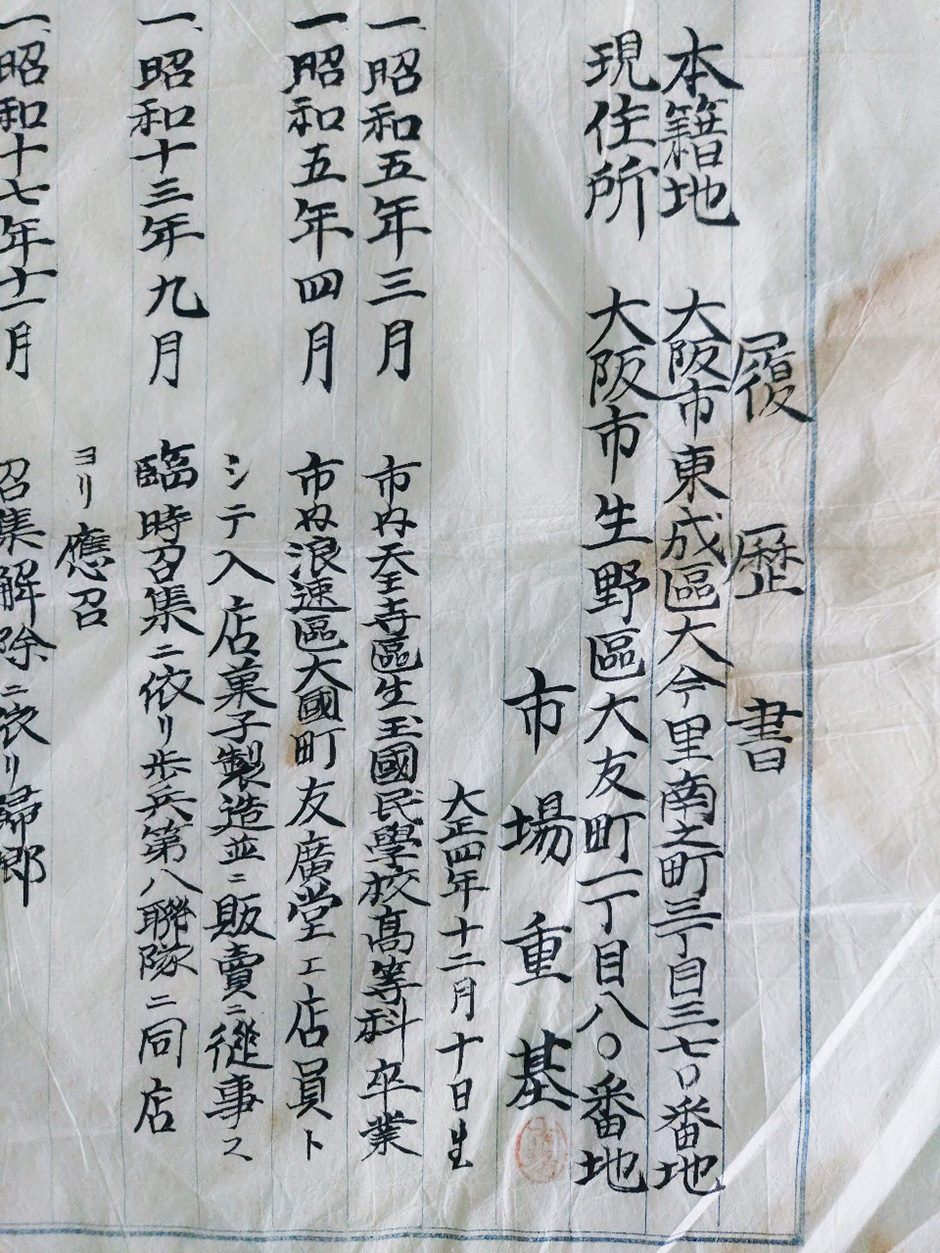 履歴書
本籍地 大阪市東成區大今里南之町三丁目三七〇番地
現住所 大阪市生野區大友町一丁目八〇番地
市場重基
大正四年十二月十日生
一、昭和五年三月 市内天王寺區生玉國民學校高等科卒業
一、昭和五年四月 市内浪速區大國町友廣堂エ店員ト
シテ入店菓子製造並ニ販賣ニ従事ス
一、昭和十三年九月 臨時召集ニ依リ歩兵第八聯隊ニ同店
ヨリ應召
一、昭和十七年十一月 召集解除ニ依リ歸郷